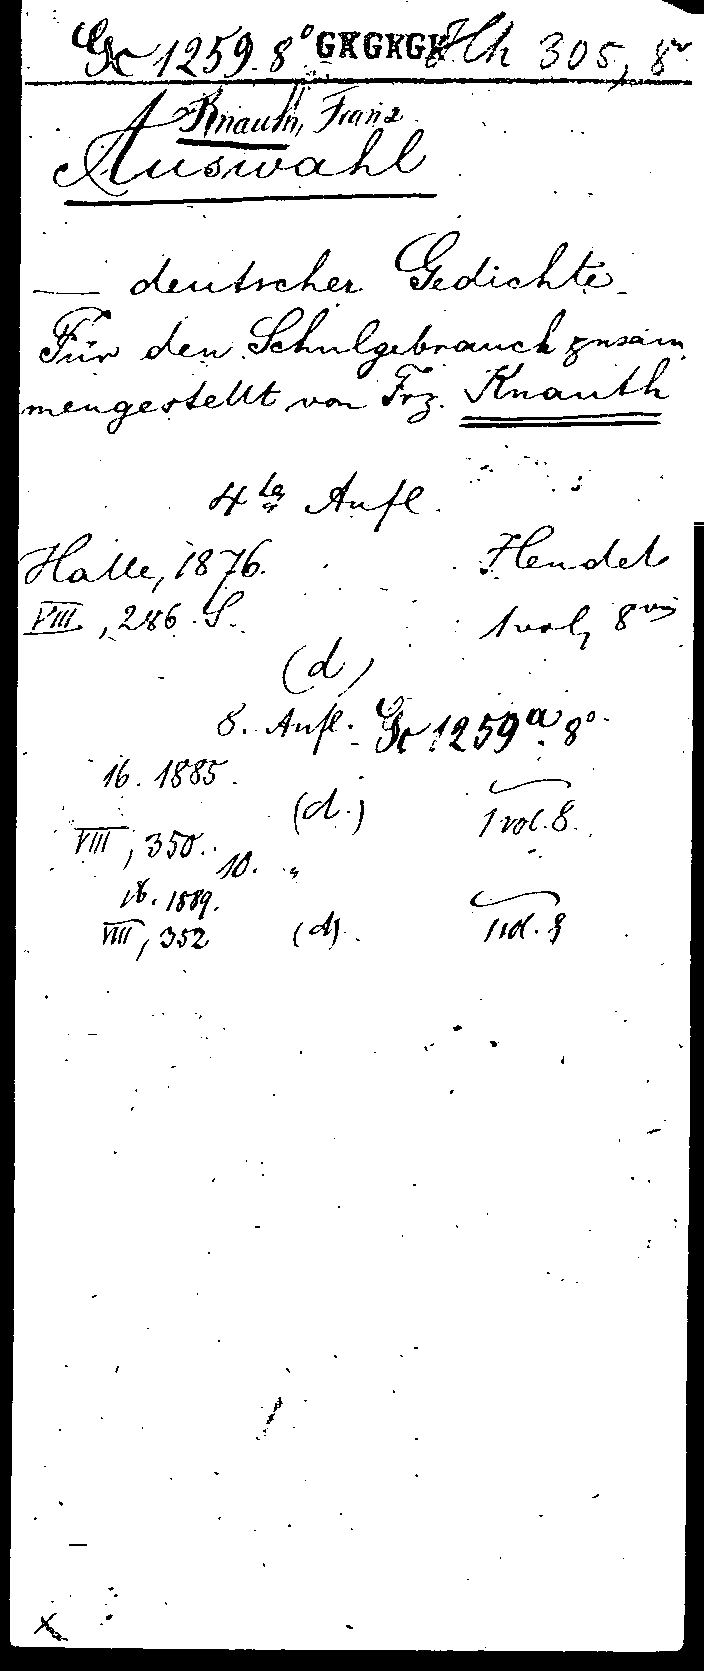 Gc 1259 8° GKGKGK Hh 305, 8°
Knauth, Franz
Auswahl
— deutscher Gedichte.
Für den Schulgebrauch zusam
mengestellt von Frz. Knauth
4te Aufl.
Halle, 1876. Hendel
VIII, 286 S. 1 vol, 8vo
(d)
8. Aufl. Gc 1259a 8°
ib. 1885.
(d.) 1 vol. 8.
VIII, 350.
10. "
ib. 1889.
VIII, 352 (d). 1 vol. 8